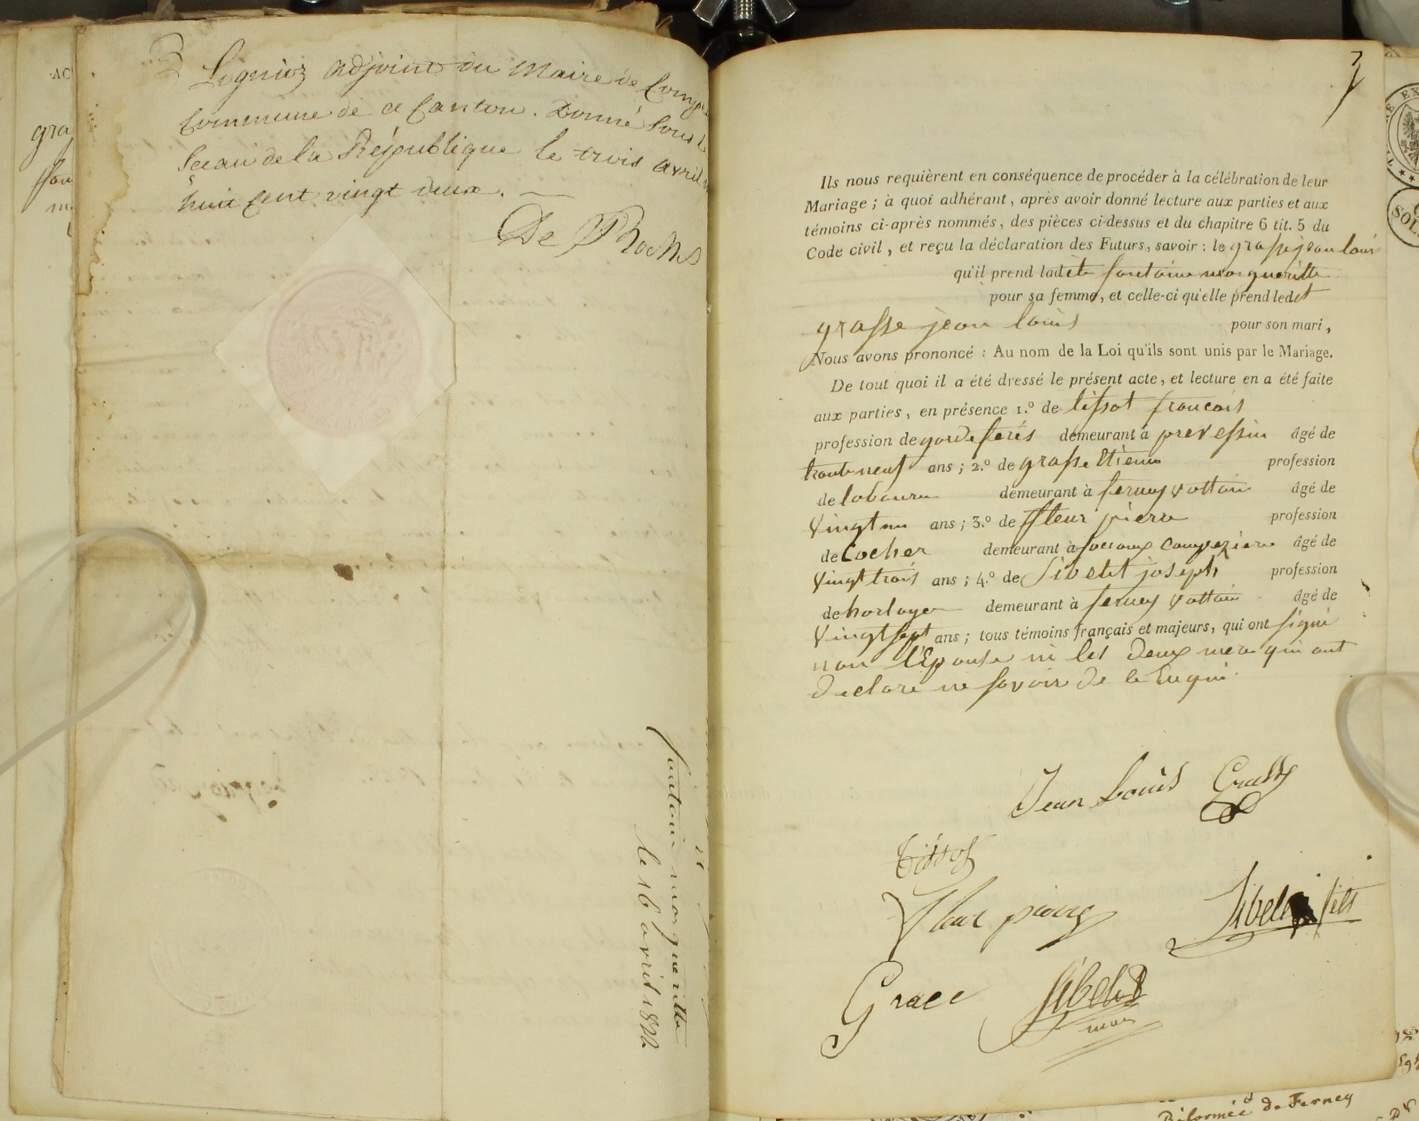 Ligniez adjoint du Maire de
Commune de ce Canton. Donné sous
Sceau de la République le trois avril
huit cent vingt deux.
De Roches
fontaine margueritte
le 16 avril 1822
Ils nous requièrent en conséquence de procéder à la célébration de leur
Mariage ; à quoi adhérant, après avoir donné lecture aux parties et aux
témoins ci-après nommés, des pièces ci-dessus et du chapitre 6 tit. 5 du
Code civil, et reçu la déclaration des Futurs, savoir : le grasse jean louis
qu'il prend ladite fontaine margueritte
pour sa femme, et celle-ci qu'elle prend ledit
grasse jean louis pour son mari,
Nous avons prononcé : Au nom de la Loi qu'ils sont unis par le Mariage.
De tout quoi il a été dressé le présent acte, et lecture en a été faite
aux parties, en présence 1.º de tissot francois
profession de garde demeurant à prevessin âgé de
trente neuf ans ; 2.º de grasse Etienne profession
de laboureur demeurant à ferney voltaire âgé de
vingt un ans ; 3.º de fleur pierre profession
de Cocher demeurant à Compezieres âgé de
vingt trois ans ; 4.º de Sibelit joseph profession
de horloger demeurant à ferney voltaire âgé de
vingt sept ans ; tous témoins français et majeurs, qui ont signé
non l'Epouse ni les deux mere qui ont
declaré ne savoir de ce Enqui
Jean Louis Grasse
Tissot
fleur pierre
Sibelit fils
Grace
Sibelit
maire
Réformée de Ferney